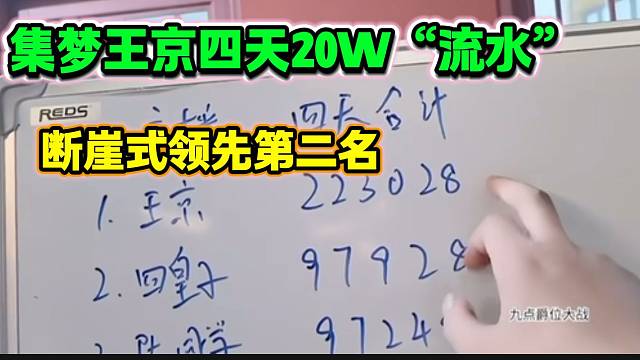 集梦王京四天20W“流水”
REDS
四天合计
断崖式领先第二名
1. 王京 223028
2. 四皇子 97928
九点爵位大战
9724